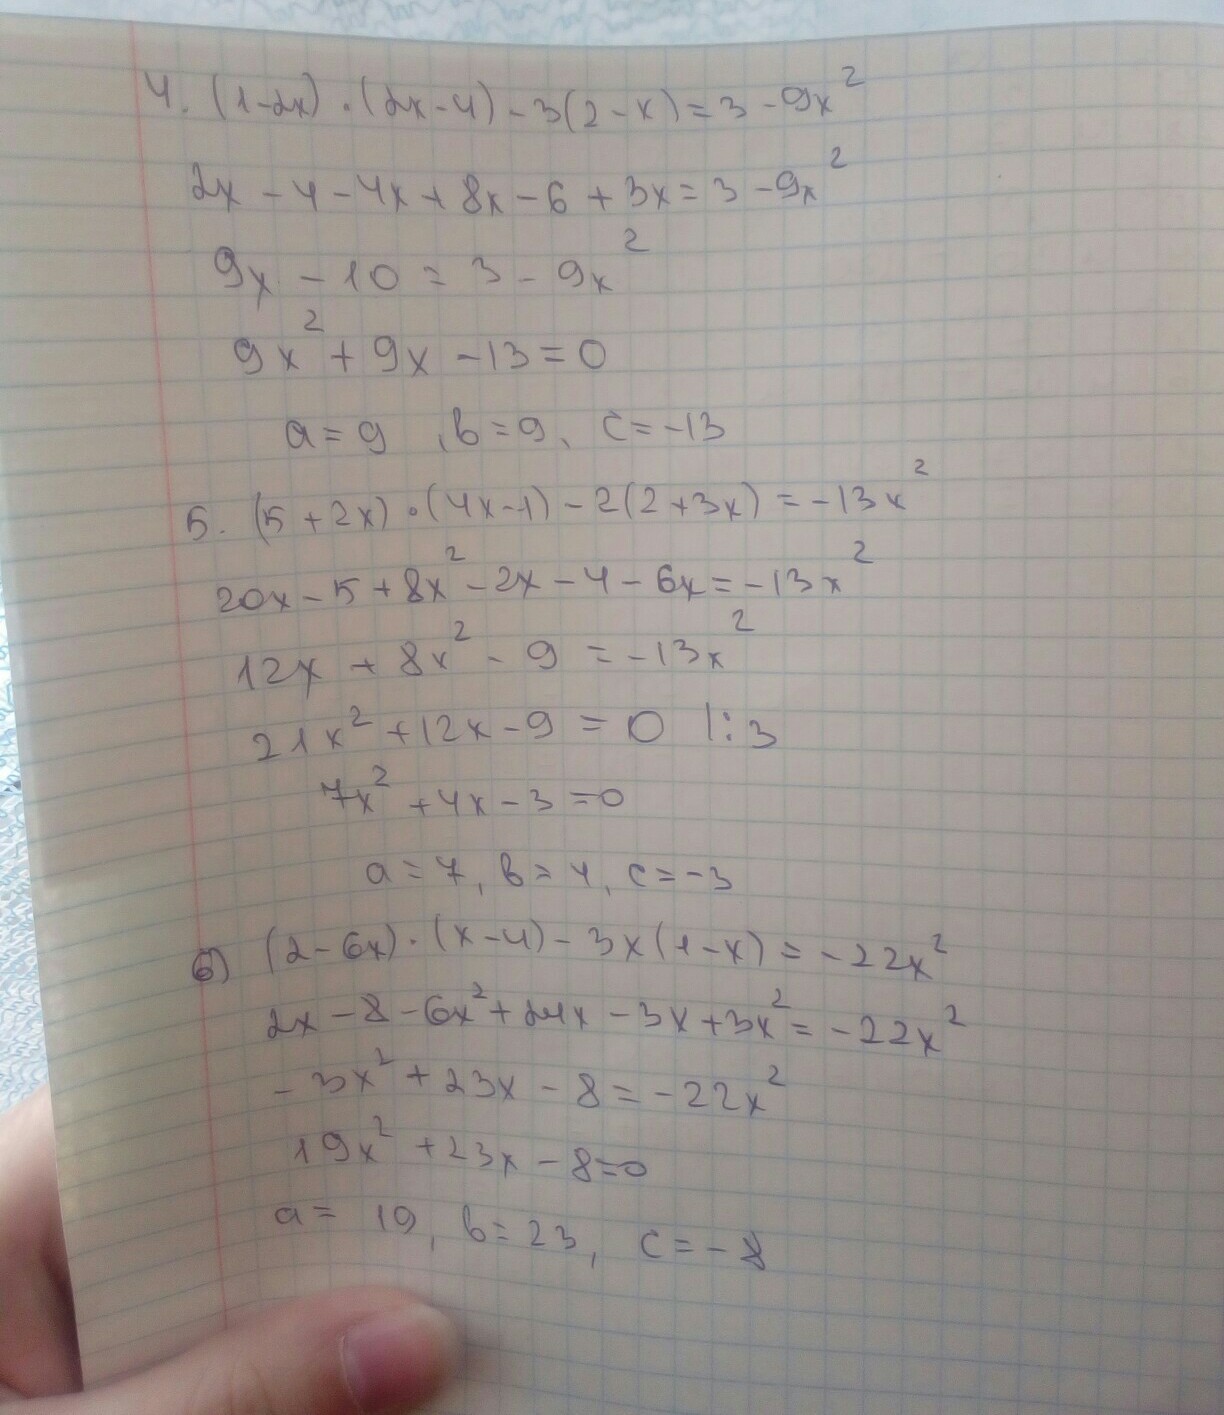 4. (1-2x)·(2x-4)-3(2-x)=3-9x²
2x-4-4x+8x-6+3x=3-9x²
9x-10=3-9x²
9x²+9x-13=0
a=9, b=9, c=-13
5. (5+2x)·(4x-1)-2(2+3x)=-13x²
20x-5+8x²-2x-4-6x=-13x²
12x+8x²-9=-13x²
21x²+12x-9=0 |:3
7x²+4x-3=0
a=7, b=4, c=-3
6) (2-6x)·(x-4)-3x(1-x)=-22x²
2x-8-6x²+24x-3x+3x²=-22x²
-3x²+23x-8=-22x²
19x²+23x-8=0
a=19, b=23, c=-8